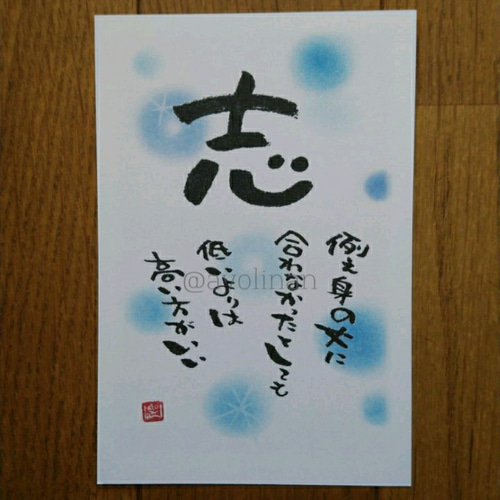 志
例え身の丈に
合わなかったとしても
低いよりは
高い方がいい
@ayolinan